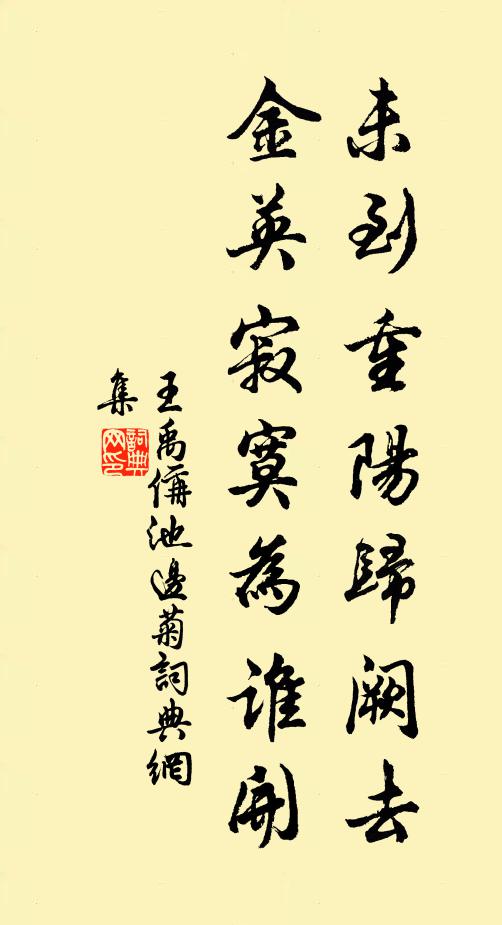 未到重陽歸闕去
金英寂寞為誰開
王禹偁池邊菊詞典網
集
詞典
網印